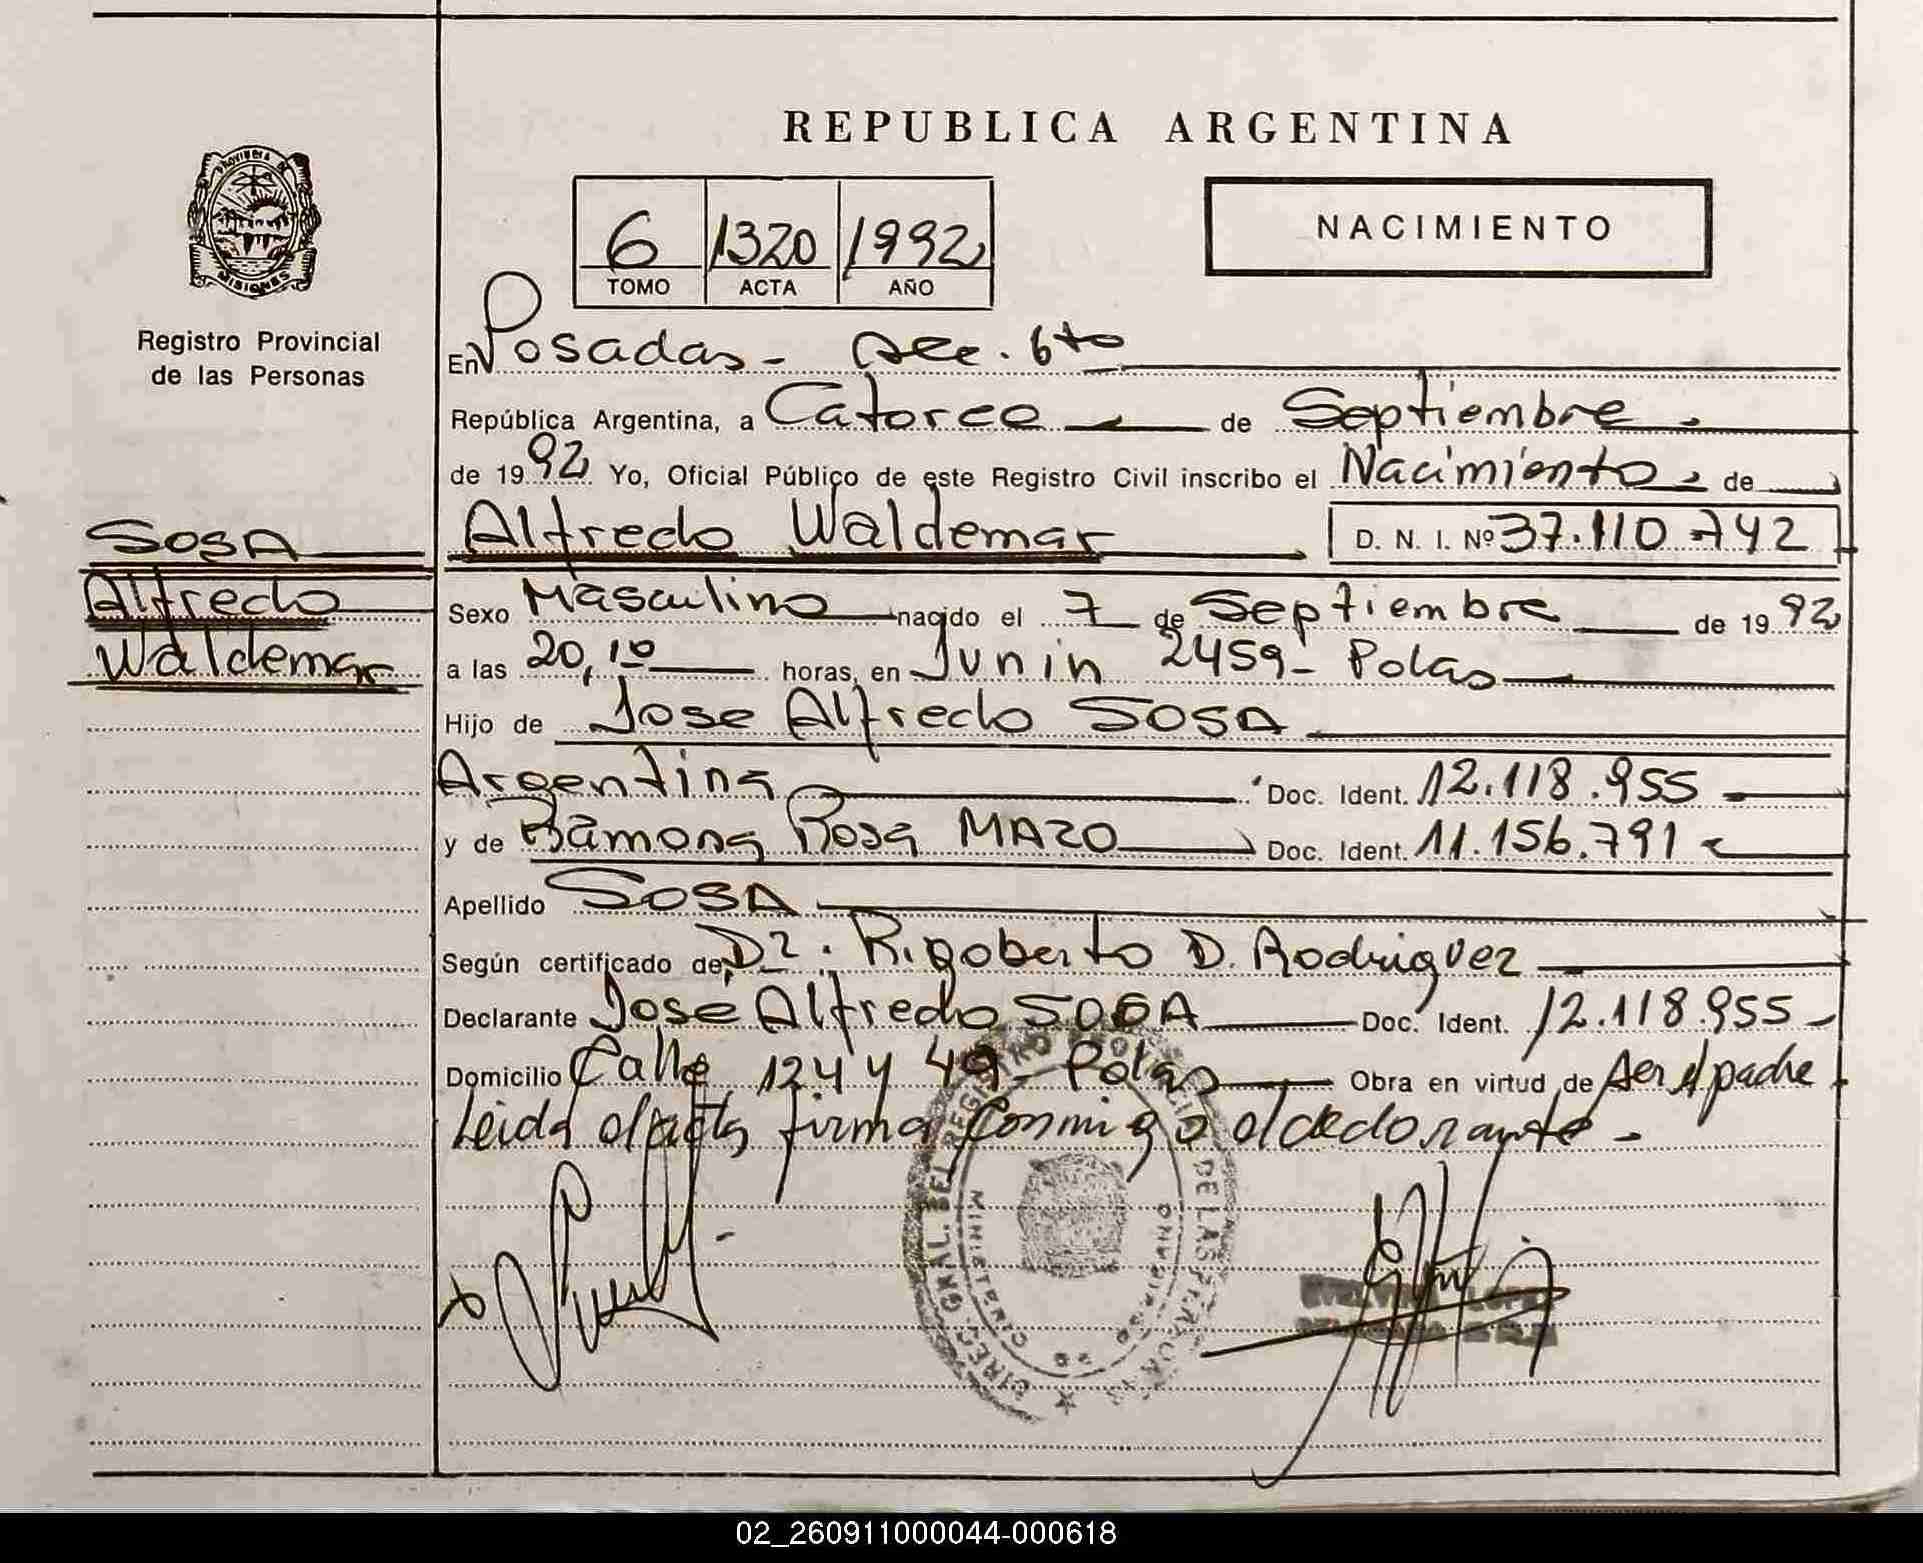 REPUBLICA ARGENTINA
PROVINCIA DE
MISIONES
Registro Provincial
de las Personas
6 1320 1992
TOMO ACTA AÑO
NACIMIENTO
En Posadas - Dele. 6to
República Argentina, a Catorce de Septiembre
de 1992 Yo, Oficial Público de este Registro Civil inscribo el Nacimiento de
SOSA Alfredo Waldemar D. N. I. Nº 37.110.742
Alfredo
Waldemar
Sexo Masculino nacido el 7 de Septiembre de 1992
a las 20,10 horas, en Junin 2459 - Pdas
Hijo de Jose Alfredo SOSA
Argentina Doc. Ident. 12.118.955
y de Ramona Rosa MAZO Doc. Ident. 11.156.791
Apellido SOSA
Según certificado de Dr. Rigoberto D. Rodriguez
Declarante José Alfredo SOSA Doc. Ident. 12.118.955
Domicilio Calle 124 y 49 - Pdas Obra en virtud de ser el padre
Leida el acta firma conmigo el declarante -
DIREC. GRAL. DEL REGISTRO PROVINCIAL DE LAS PERSONAS
MINISTERIO DE GOBIERNO
02_260911000044-000618